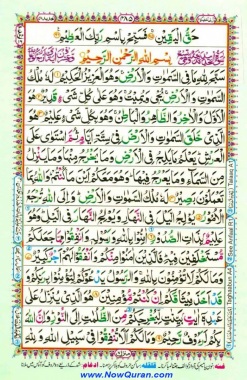 ٤٨٥
حَقُّ الْيَقِيْنِ فَسَبِّحْ بِاسْمِ رَبِّكَ الْعَظِيْمِ
بِسْمِ اللهِ الرَّحْمٰنِ الرَّحِيْمِ
سَبَّحَ لِلّٰهِ مَا فِي السَّمٰوٰتِ وَالْاَرْضِ وَهُوَ الْعَزِيْزُ الْحَكِيْمُ لَهٗ مُلْكُ
السَّمٰوٰتِ وَالْاَرْضِ يُحْيٖ وَيُمِيْتُ وَهُوَ عَلٰى كُلِّ شَيْءٍ قَدِيْرٌ هُوَ
الْاَوَّلُ وَالْاٰخِرُ وَالظَّاهِرُ وَالْبَاطِنُ وَهُوَ بِكُلِّ شَيْءٍ عَلِيْمٌ هُوَ
الَّذِيْ خَلَقَ السَّمٰوٰتِ وَالْاَرْضَ فِيْ سِتَّةِ اَيَّامٍ ثُمَّ اسْتَوٰى عَلَى
الْعَرْشِ يَعْلَمُ مَا يَلِجُ فِي الْاَرْضِ وَمَا يَخْرُجُ مِنْهَا وَمَا يَنْزِلُ
مِنَ السَّمَآءِ وَمَا يَعْرُجُ فِيْهَا وَهُوَ مَعَكُمْ اَيْنَ مَا كُنْتُمْ وَاللهُ بِمَا
تَعْمَلُوْنَ بَصِيْرٌ لَهٗ مُلْكُ السَّمٰوٰتِ وَالْاَرْضِ وَاِلَى اللهِ تُرْجَعُ
الْاُمُوْرُ يُوْلِجُ الَّيْلَ فِي النَّهَارِ وَيُوْلِجُ النَّهَارَ فِي الَّيْلِ وَهُوَ
عَلِيْمٌ بِذَاتِ الصُّدُوْرِ اٰمِنُوْا بِاللهِ وَرَسُوْلِهٖ وَاَنْفِقُوْا مِمَّا جَعَلَكُمْ
مُّسْتَخْلَفِيْنَ فِيْهِ فَالَّذِيْنَ اٰمَنُوْا مِنْكُمْ وَاَنْفَقُوْا لَهُمْ اَجْرٌ كَبِيْرٌ
وَمَا لَكُمْ لَا تُؤْمِنُوْنَ بِاللهِ وَالرَّسُوْلُ يَدْعُوْكُمْ لِتُؤْمِنُوْا بِرَبِّكُمْ وَ
قَدْ اَخَذَ مِيْثَاقَكُمْ اِنْ كُنْتُمْ مُّؤْمِنِيْنَ هُوَ الَّذِيْ يُنَزِّلُ عَلٰى
عَبْدِهٖٓ اٰيٰتٍ بَيِّنٰتٍ لِّيُخْرِجَكُمْ مِّنَ الظُّلُمٰتِ اِلَى النُّوْرِ وَاِنَّ اللهَ
بِكُمْ لَرَءُوْفٌ رَّحِيْمٌ وَمَا لَكُمْ اَلَّا تُنْفِقُوْا فِيْ سَبِيْلِ اللهِ وَلِلّٰهِ
www.NowQuran.com